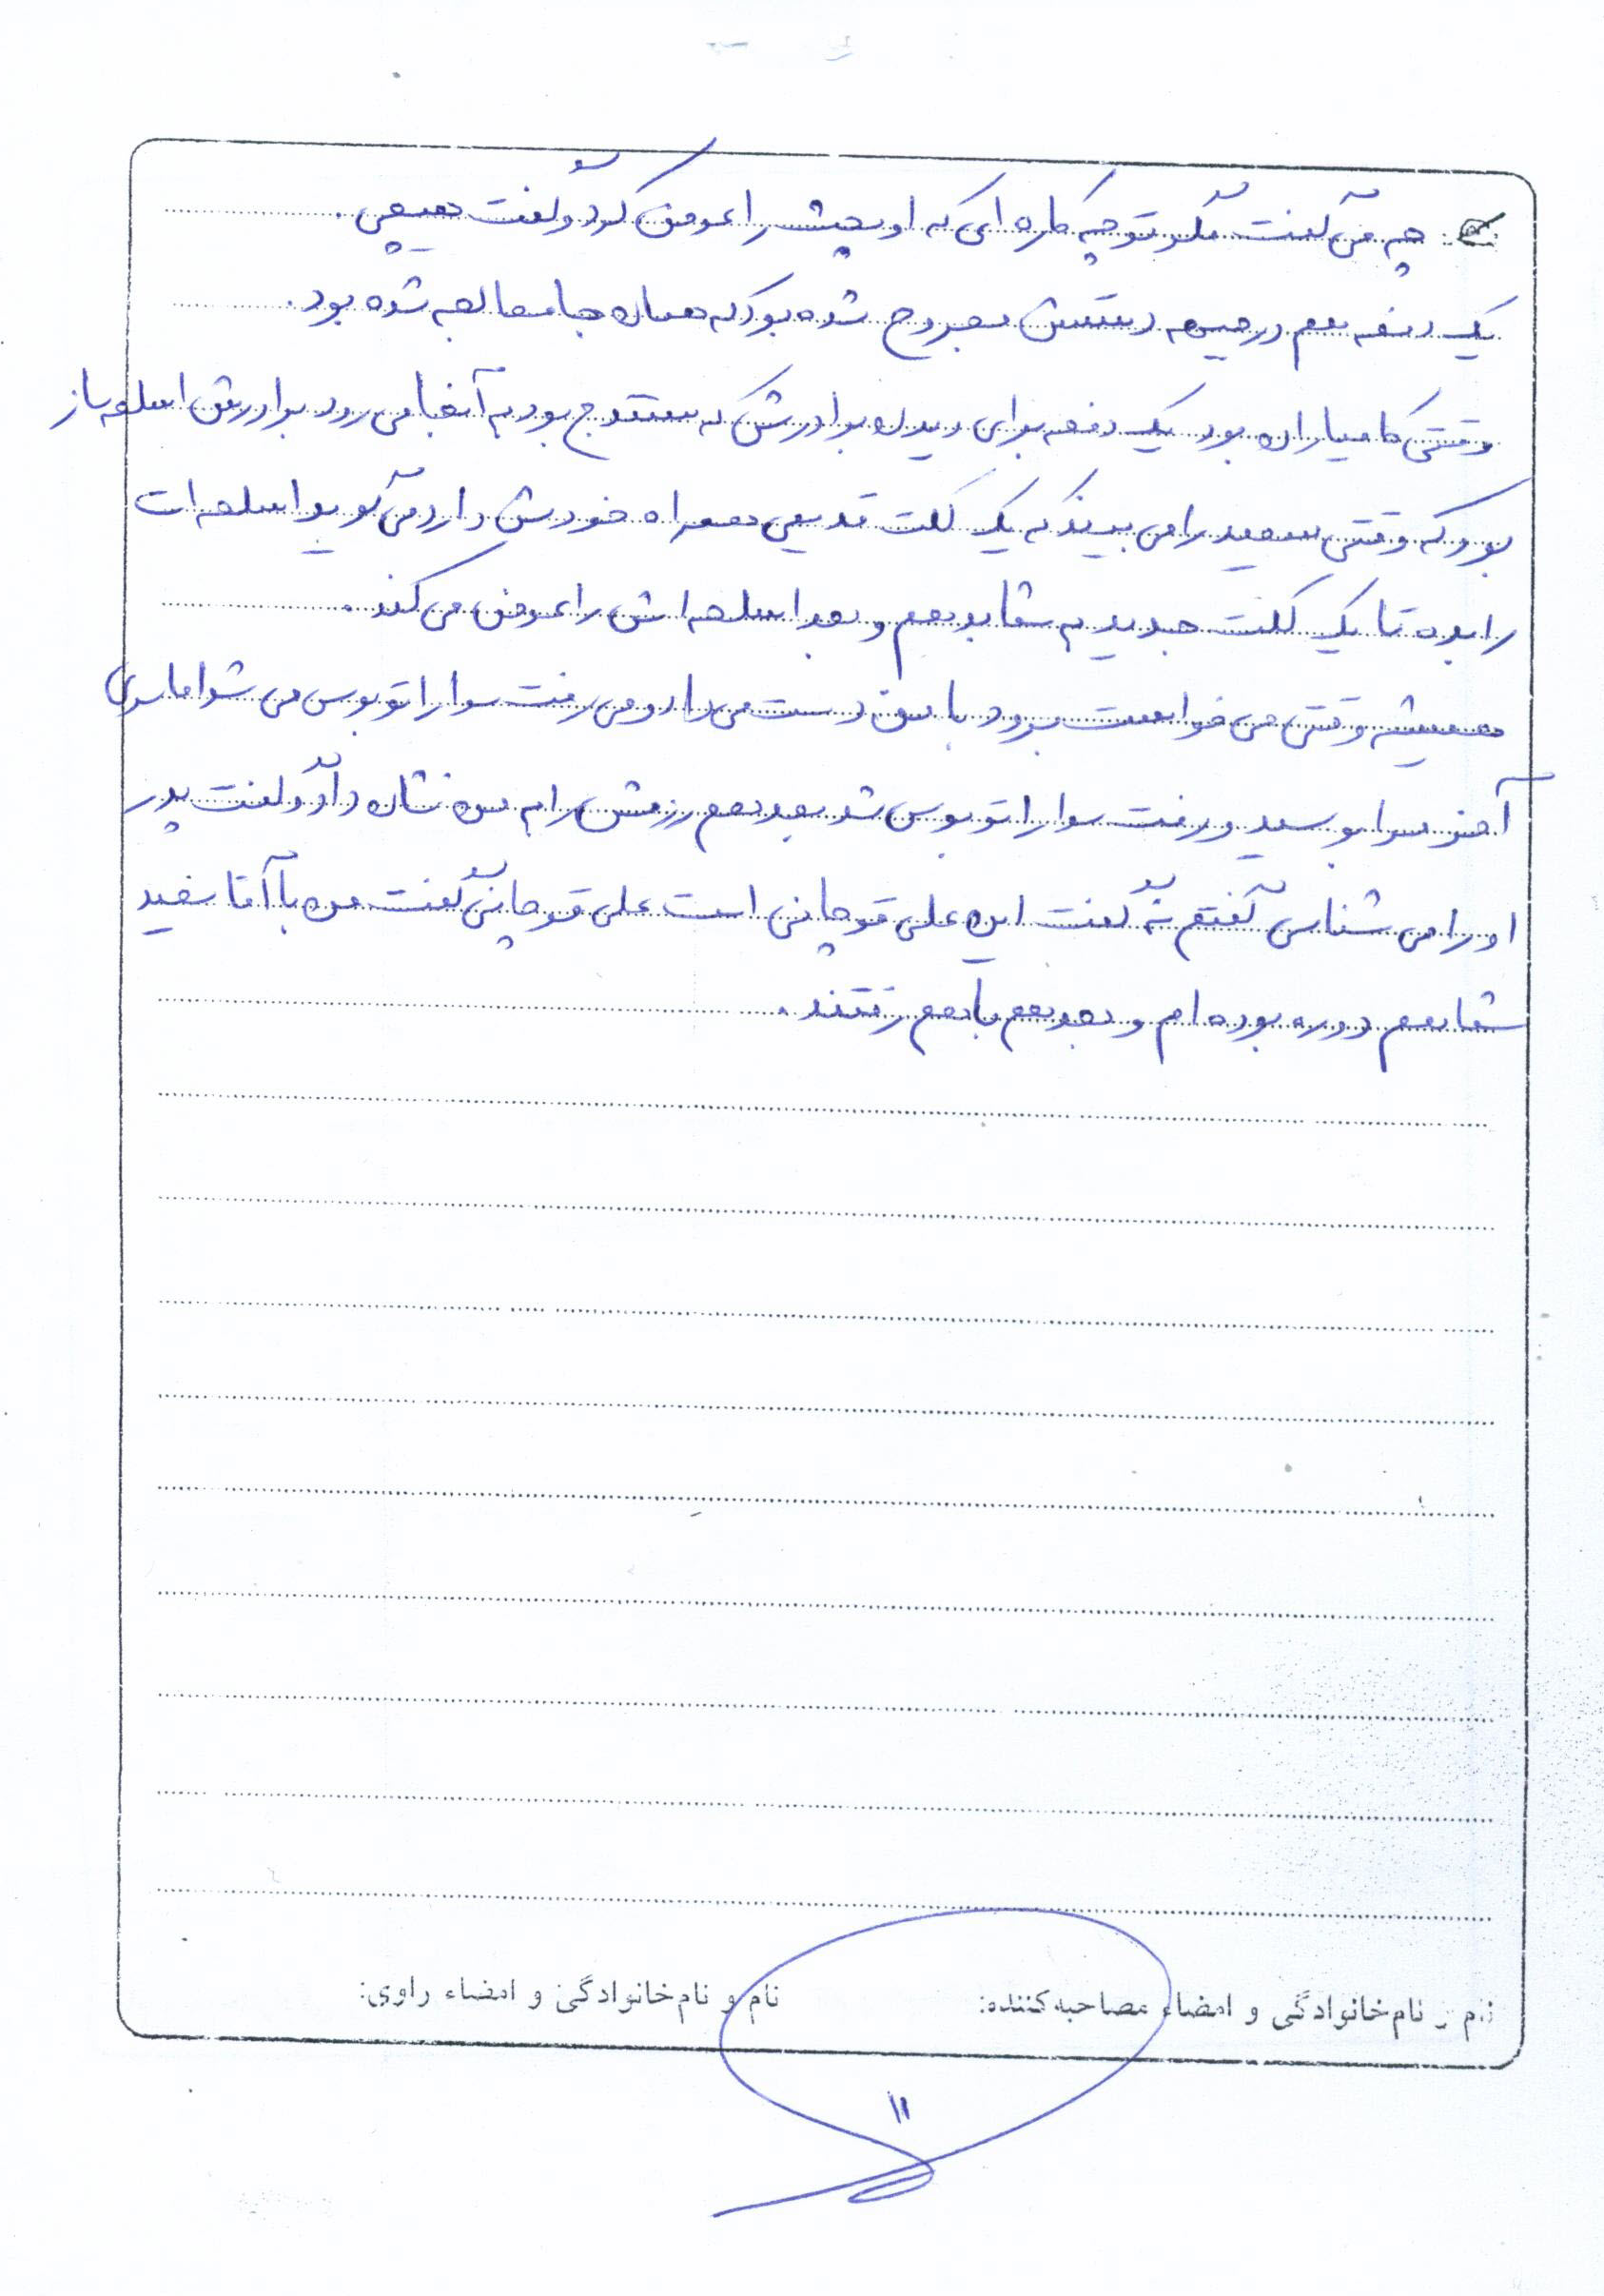 چه می گفت مگر تو چه کاره ای که او بحث را عوض کرد و گفت هیچی.
یک دفعه هم در جبهه دستش مجروح شده بود که همان جا معالجه شده بود.
وقتی کامیاران بود یک دفعه برای دیدن برادرش که سنندج بود به آنجا می رود برادرش اسلحه ساز
بود که وقتی سعید را می بیند که یک کلت قدیمی همراه خودش دارد می گوید اسلحه ات
را بده تا یک کلت جدید به شما بدهم و بعد اسلحه اش را عوض می کند.
همیشه وقتی می خواست برود با من دست می داد و می رفت سوار اتوبوس می شد اما سری
آخر مرا بوسید و رفت سوار اتوبوس شد بعد هم رزمش را به من نشان داد و گفت پدر
او را می شناسی گفتم نه گفت این علی قوچانی است علی قوچانی گفت من با آقا سعید
شما هم دوره بوده ام و بعد هم با هم رفتند.
نام و نام خانوادگی و امضاء مصاحبه کننده: نام و نام خانوادگی و امضاء راوی:
۱۱